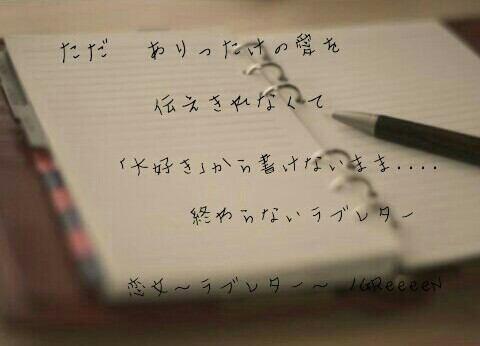 ただ ありったけの愛を
伝えきれなくて
「大好き」から書けないまま....
終わらないラブレター
恋文～ラブレター～ /GReeeeN